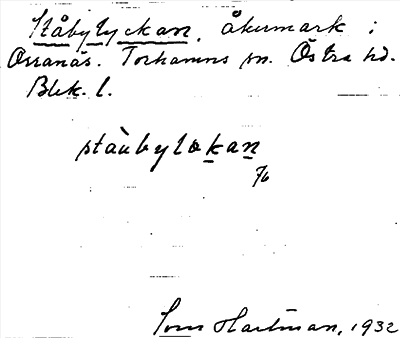 Ståbylyckan, åkermark i
Orranäs. Torhamns sn. Östra hd.
Blek. l.
stàubylokan
7/6
Torn Hartman, 1932